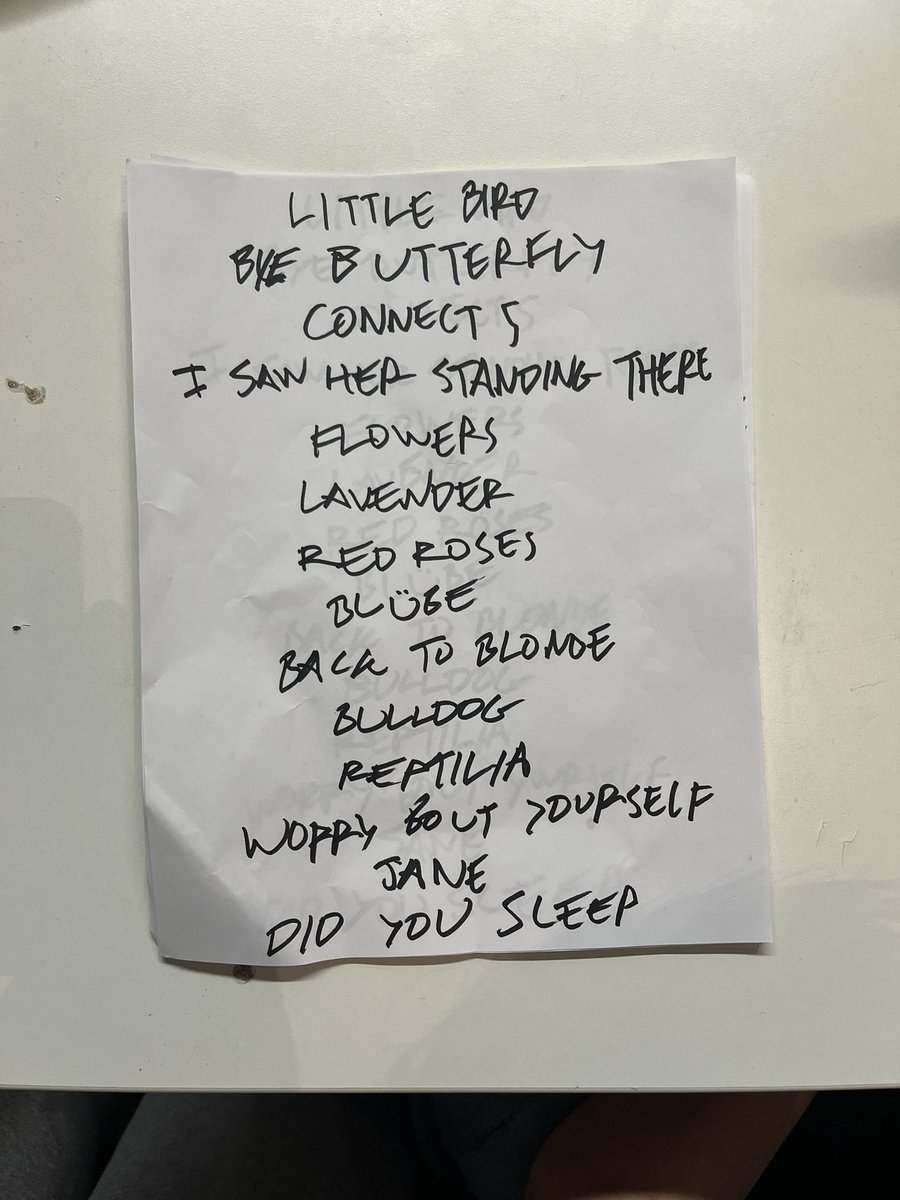 LITTLE BIRD
BYE BUTTERFLY
CONNECT 5
I SAW HER STANDING THERE
FLOWERS
LAVENDER
RED ROSES
BLÜBE
BACK TO BLONDE
BULLDOG
REPTILIA
WORRY BOUT YOURSELF
JANE
DID YOU SLEEP